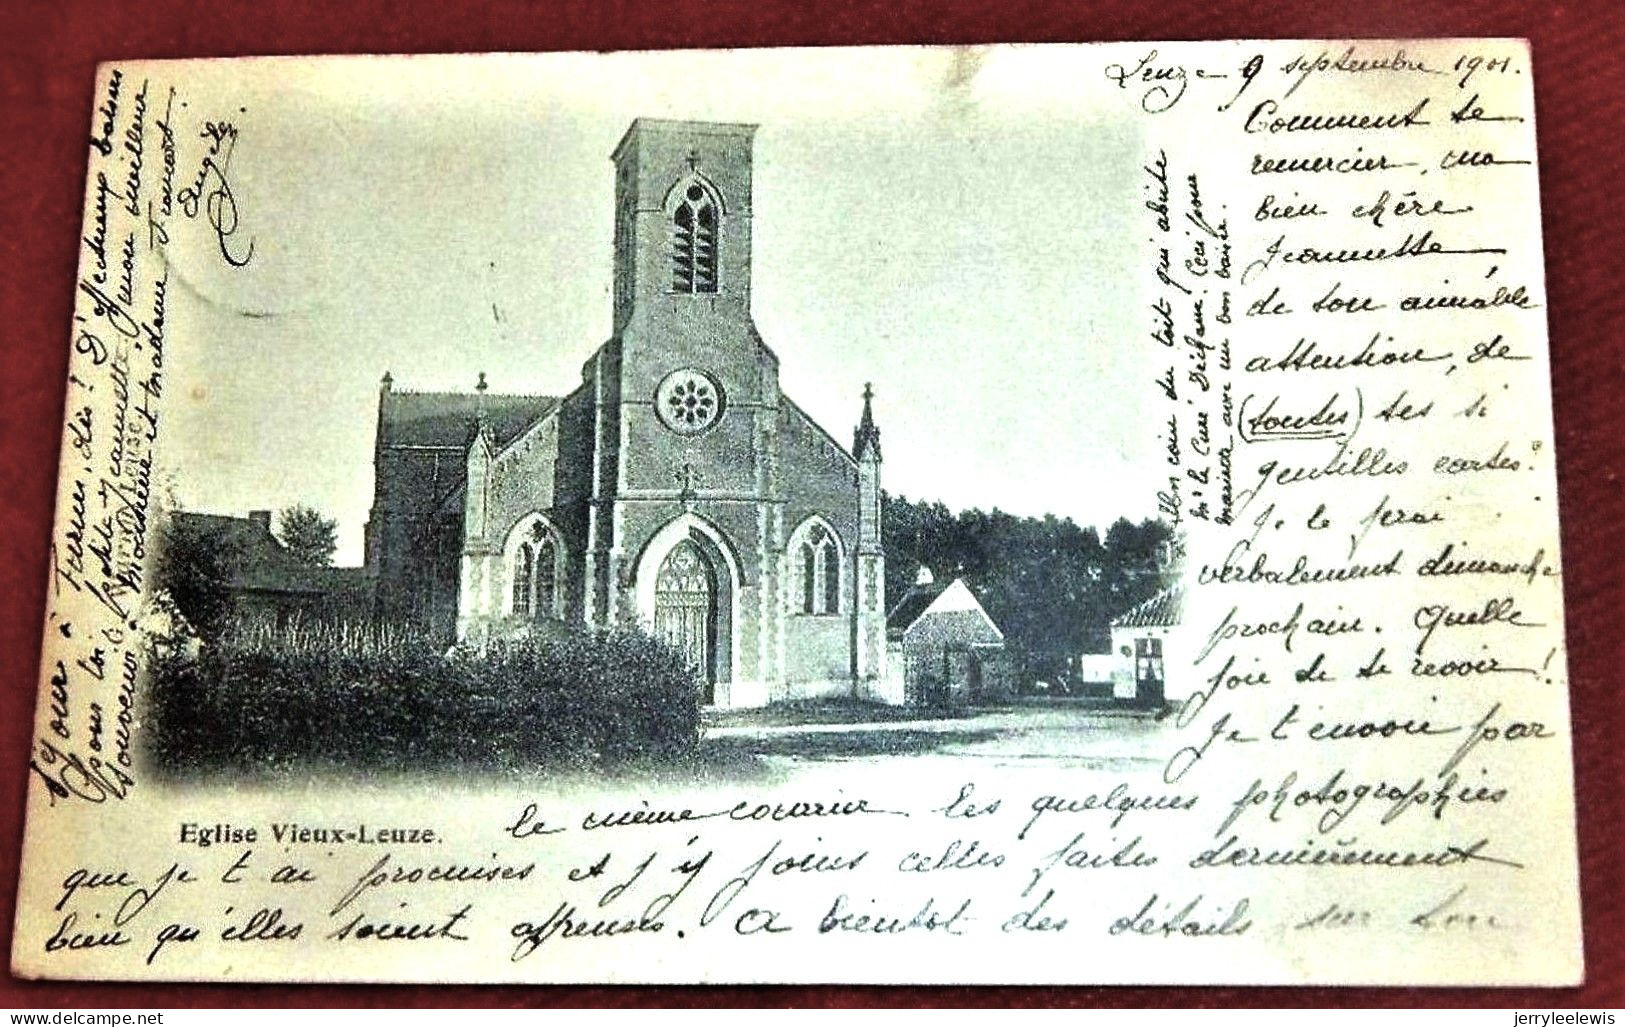 Leuze 9 septembre 1901.
Comment te
remercier, ma
bien chère
Jeannette
de ton aimable
attention, de
(toutes) tes si
gentilles cartes?
Je le ferai
verbalement dimanche
prochain. Quelle
joie de te revoir!
Je t'envoie par
le même courrier les quelques photographies
que je t'ai promises et j'y joins celles faites dernièrement
bien qu'elles soient affreuses. A bientôt des détails sur ton
séjour à
pour toi
souvenir à Madame et Madame
D'ici
baisers
mon meilleur
Angèle
coin du toit qui abrite
Mr le Curé Ceci pour
avec un bon baiser.
Eglise Vieux-Leuze.
jerryleelewis
delcampe.net